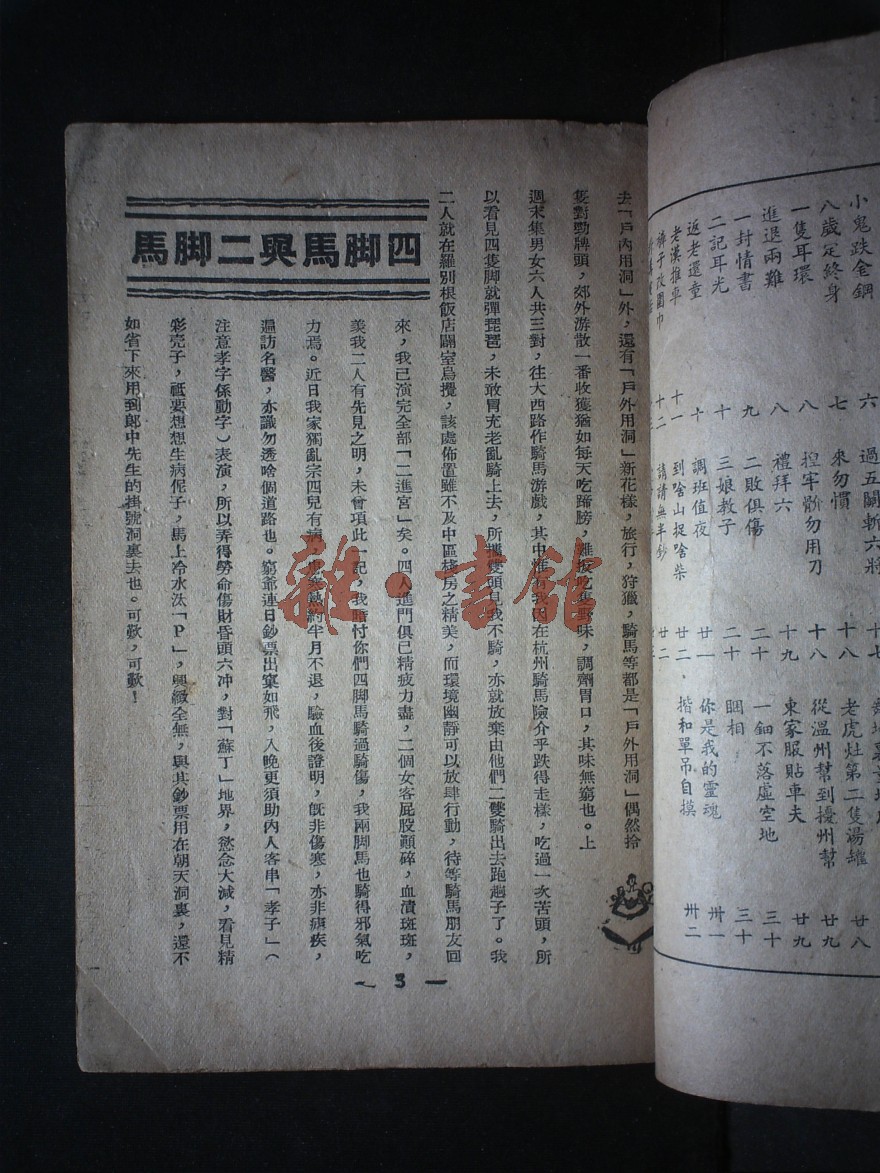 小鬼跌金鋼 六
八歲定終身 七
一隻耳環 八
進退兩難 八
一封情書 九
二記耳光 十
返老還童 十
老漢推車 十一
褲子改圍巾 十二
過五關斬六將 十七
來勿慣 十八
揑牢骱勿用刀 十八
禮拜六 十九
二敗俱傷 二十
三娘教子 二十
調班值夜 廿一
到啥山捉啥柴 廿二
請請無半鈔
老虎灶第二隻湯罐 廿八
從溫州幫到擾州幫 廿九
東家服貼車夫 廿九
一鈿不落虛空地 三十
睏相 三十
你是我的靈魂 卅一
揩和單吊自摸 卅二
四脚馬與二脚馬
去「戶內用洞」外，還有「戶外用洞」新花樣，旅行，狩獵，騎馬等都是「戶外用洞」偶然拎
隻對勁牌頭，郊外游散一番收獲猶如每天吃蹄膀，難扳吃隻野味，調劑胃口，其味無窮也。上
週末集男女六人共三對，往大西路作騎馬游戲，其中惟有我因在杭州騎馬險介乎跌得走樣，吃過一次苦頭，所
以看見四隻脚就彈琵琶，未敢冒充老亂騎上去，所攜雙頭見我不騎，亦就放棄由他們二雙騎出去跑趟子了。我
二人就在羅別根飯店闢室烏攪，該處佈置雖不及中區棧房之精美，而環境幽靜可以放肆行動，待等騎馬朋友回
來，我已演完全部「二進宮」矣。四人進門俱已精疲力盡，二個女客屁股顚碎，血漬斑斑，
羡我二人有先見之明，未曾項此一記，我暗忖你們四脚馬騎過騎傷，我兩脚馬也騎得邪氣吃
力焉。近日我家獨亂宗四兒有病，患寒熱約半月不退，驗血後證明，旣非傷寒，亦非瘧疾，
遍訪名醫，亦識勿透啥個道路也。窮爺連日鈔票出窠如飛，入晚更須助內人客串「孝子」（
注意孝字係動字）表演，所以弄得勞命傷財昏頭六冲，對「蘇丁」地界，慾念大減，看見精
彩壳子，祇要想想生病伲子，馬上冷水汰「P」，興緻全無，與其鈔票用在朝天洞裏，還不
如省下來用到郎中先生的掛號洞裏去也。可歎，可歎！
— 3 —
雜·書館